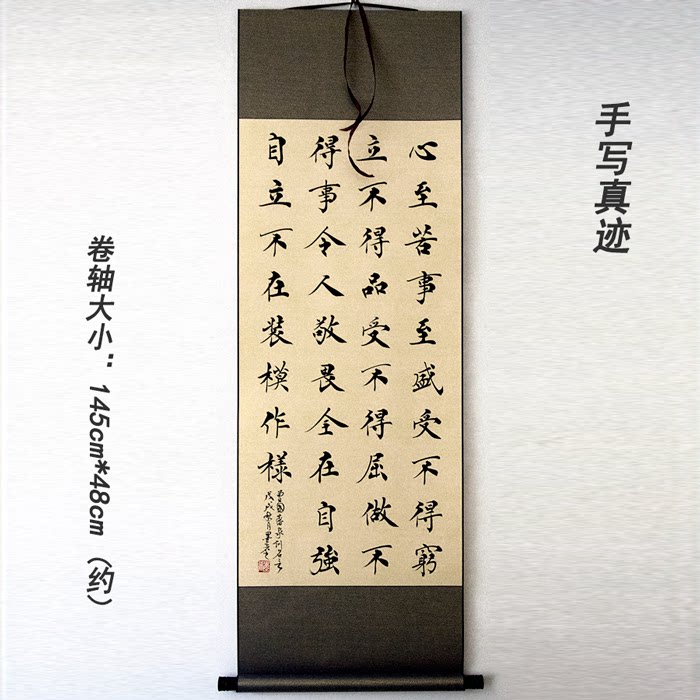 手写真迹
心至苦事至盛受不得窮
立不得品受不得屈做不
得事令人敬畏全在自強
自立不在裝模作樣
曾國藩
戊戌
卷轴大小：145cm*48cm（约）